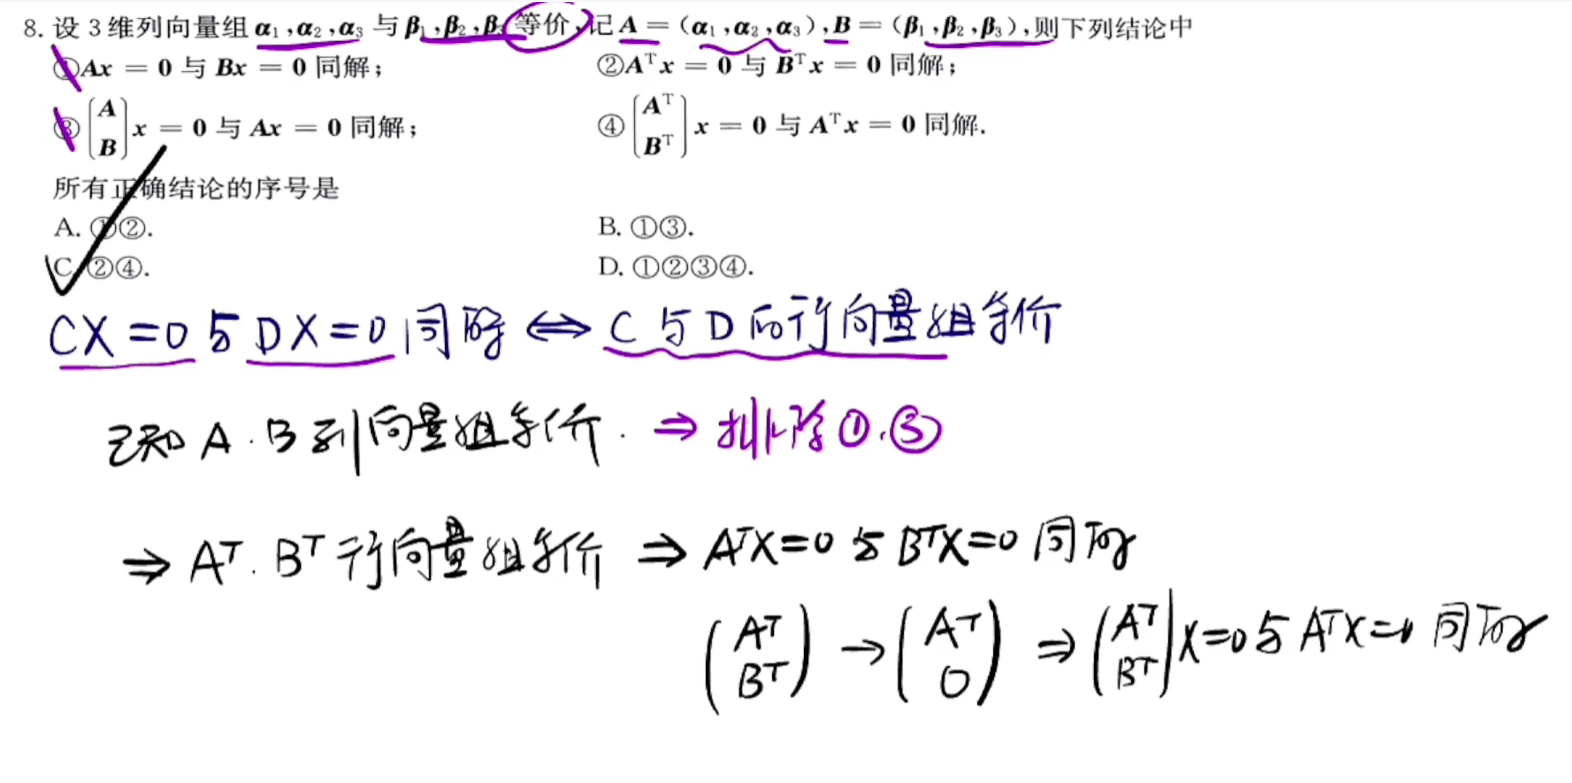 8. 设 3 维列向量组 α₁,α₂,α₃ 与 β₁,β₂,β₃ 等价,记 A = (α₁,α₂,α₃),B = (β₁,β₂,β₃),则下列结论中
①Ax = 0 与 Bx = 0 同解; ②Aᵀx = 0 与 Bᵀx = 0 同解;
③(A B)x = 0 与 Ax = 0 同解; ④(Aᵀ Bᵀ)x = 0 与 Aᵀx = 0 同解.
所有正确结论的序号是
A. ①②. B. ①③.
C. ②④. D. ①②③④.
CX=0 与 DX=0 同解 ⇔ C 与 D 的行向量组等价
已知 A.B 列向量组等价. ⇒ 排除①.③
⇒ Aᵀ.Bᵀ 行向量组等价 ⇒ AᵀX=0 与 BᵀX=0 同解
(Aᵀ Bᵀ) → (Aᵀ 0) ⇒ (Aᵀ Bᵀ)X=0 与 AᵀX=0 同解